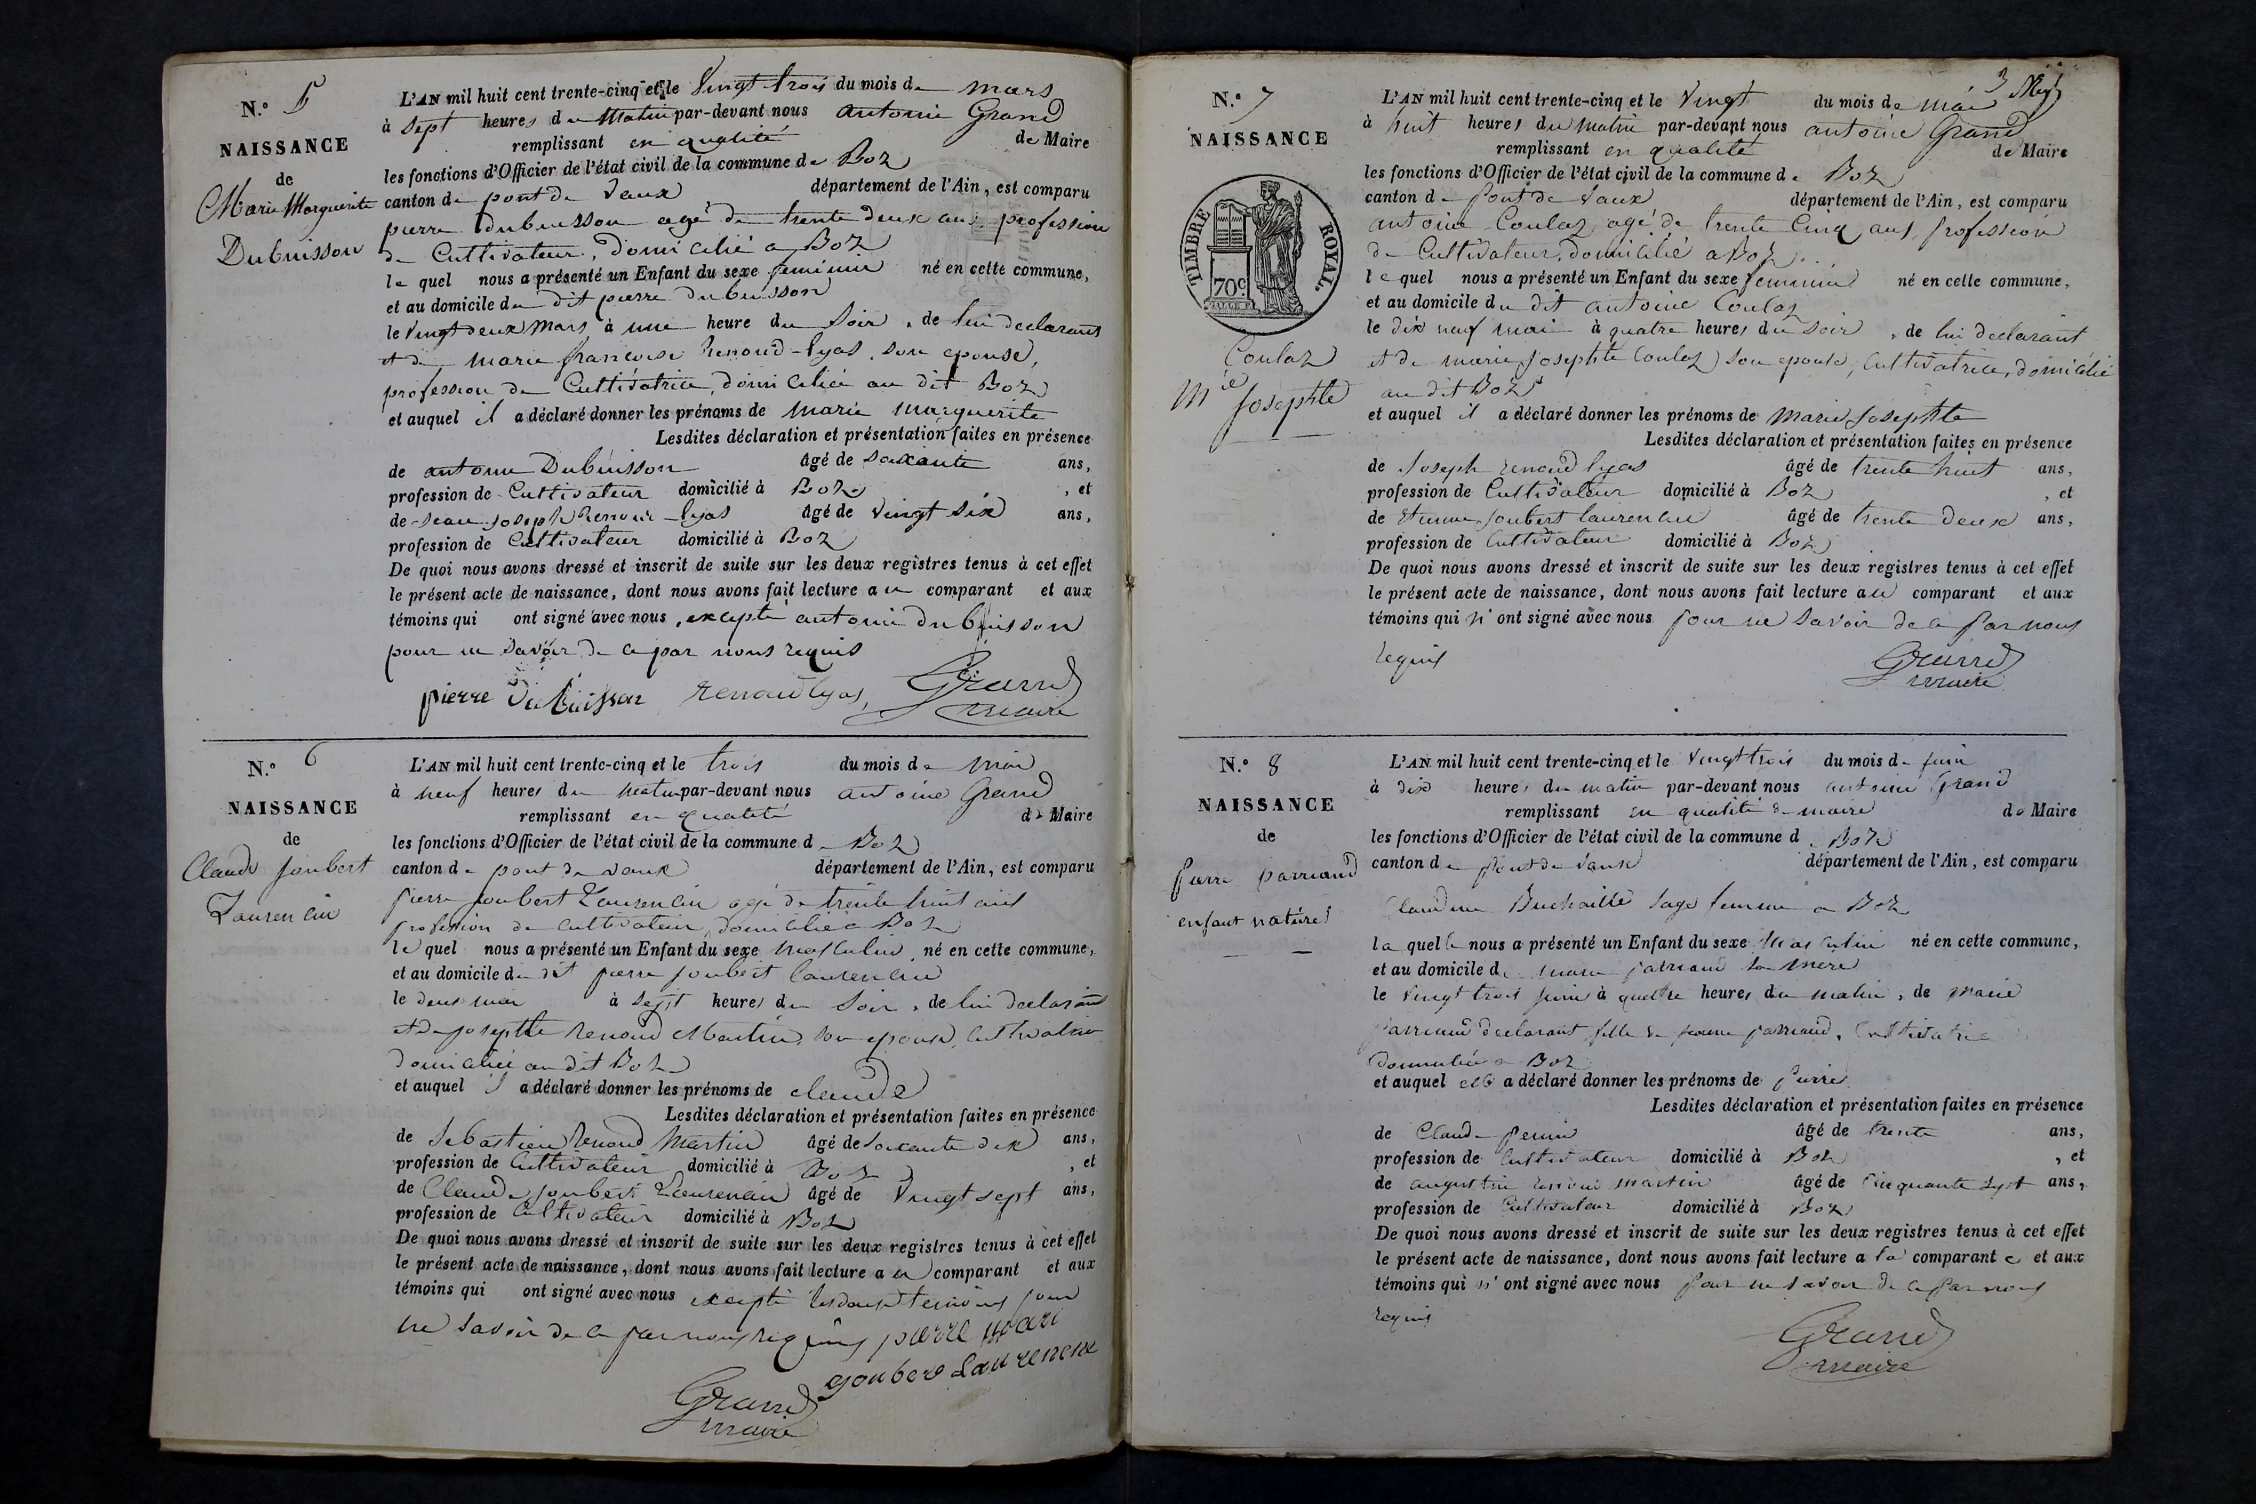 N.° 5
NAISSANCE
de
Marie Marguerite
Dubuisson
L'AN mil huit cent trente-cinq et le Vingt trois du mois de mars
à sept heures du Matin par-devant nous antoine Grand
remplissant en qualité de Maire
les fonctions d'Officier de l'état civil de la commune de Boz
canton de pont de Vaux département de l'Ain, est comparu
pierre dubuisson agé de trente deux ans profession
de Cultivateur, domicilié a Boz
le quel nous a présenté un Enfant du sexe feminin né en cette commune,
et au domicile du dit pierre dubuisson
le Vingt deux Mars à une heure du Soir, de lui declarant
et de marie francoise Renoud-lyas, son epouse,
profession de Cultivatrice, domiciliée au dit Boz
et auquel il a déclaré donner les prénoms de marie marguerite
Lesdites déclaration et présentation faites en présence
de antoine Dubuisson âgé de soixante ans,
profession de Cultivateur domicilié à Boz, et
de jean joseph Renoud-lyas âgé de Vingt six ans,
profession de Cultivateur domicilié à Boz
De quoi nous avons dressé et inscrit de suite sur les deux registres tenus à cet effet
le présent acte de naissance, dont nous avons fait lecture au comparant et aux
témoins qui ont signé avec nous, excepté antoine dubuisson
pour ne savoir de ce par nous requis
pierre Dubuisson renoud lyas, Grand
maire
N.° 6
NAISSANCE
de
Claude Joubert
Laurencin
L'AN mil huit cent trente-cinq et le trois du mois de mai
à neuf heures du matin par-devant nous antoine Grand
remplissant en qualité de Maire
les fonctions d'Officier de l'état civil de la commune de Boz
canton de pont de vaux département de l'Ain, est comparu
pierre joubert Laurencin agé de trente huit ans
profession de cultivateur, domicilié a Boz
le quel nous a présenté un Enfant du sexe masculin, né en cette commune,
et au domicile du dit pierre joubert laurencin
le deux mai à sept heures du soir, de lui declarant
et de josephte Renoud Martin, son epouse, cultivatrice
domiciliée au dit Boz
et auquel il a déclaré donner les prénoms de claude
Lesdites déclaration et présentation faites en présence
de Sebastien Renoud Martin âgé de soixante dix ans,
profession de Cultivateur domicilié à Boz, et
de Claude joubert Laurencin âgé de Vingt sept ans,
profession de Cultivateur domicilié à Boz
De quoi nous avons dressé et inscrit de suite sur les deux registres tenus à cet effet
le présent acte de naissance, dont nous avons fait lecture au comparant et aux
témoins qui ont signé avec nous excepté les deux temoins pour
ne savoir de ce par nous requis pierre mari
goubere Laurenene
Grand
maire
3
N.° 7
NAISSANCE
TIMBRE ROYAL.
70c.
Coulaz
Mie Josephte
L'AN mil huit cent trente-cinq et le Vingt du mois de mai
à huit heures du matin par-devant nous antoine Grand
remplissant en qualité de Maire
les fonctions d'Officier de l'état civil de la commune de Boz
canton de Pont de Vaux département de l'Ain, est comparu
antoine Coulaz agé de trente Cinq ans profession
de Cultivateur, domicilié a Boz
le quel nous a présenté un Enfant du sexe feminin né en cette commune,
et au domicile du dit antoine Coulaz
le dix neuf mai à quatre heures du soir, de lui declarant
et de marie Josephte Coulaz son epouse, cultivatrice, domiciliée
au dit Boz
et auquel il a déclaré donner les prénoms de Marie Josephte
Lesdites déclaration et présentation faites en présence
de Joseph renoud lyas âgé de trente huit ans,
profession de Cultivateur domicilié à Boz, et
de Etienne Joubert laurencin âgé de trente deux ans,
profession de Cultivateur domicilié à Boz
De quoi nous avons dressé et inscrit de suite sur les deux registres tenus à cet effet
le présent acte de naissance, dont nous avons fait lecture au comparant et aux
témoins qui n'ont signé avec nous pour ne savoir de ce par nous
requis
Grand
maire
N.° 8
NAISSANCE
de
pierre parriaud
enfant naturel
L'AN mil huit cent trente-cinq et le Vingt trois du mois de juin
à dix heures du matin par-devant nous antoine Grand
remplissant en qualité de maire de Maire
les fonctions d'Officier de l'état civil de la commune de Boz
canton de Pont de Vaux département de l'Ain, est comparu
Claudine Buchaille sage femme a Boz
la quelle nous a présenté un Enfant du sexe Masculin né en cette commune,
et au domicile de marie parriaud sa mere
le Vingt trois juin à quatre heures du matin, de marie
parriaud declarant fille de parriaud, Cultivatrice
domiciliée a Boz
et auquel elle a déclaré donner les prénoms de pierre
Lesdites déclaration et présentation faites en présence
de Claude perrin âgé de trente ans,
profession de Cultivateur domicilié à Boz, et
de augustin renoud martin âgé de Cinquante sept ans,
profession de Cultivateur domicilié à Boz
De quoi nous avons dressé et inscrit de suite sur les deux registres tenus à cet effet
le présent acte de naissance, dont nous avons fait lecture a la comparante et aux
témoins qui n'ont signé avec nous pour ne savoir de ce par nous
requis
Grand
maire